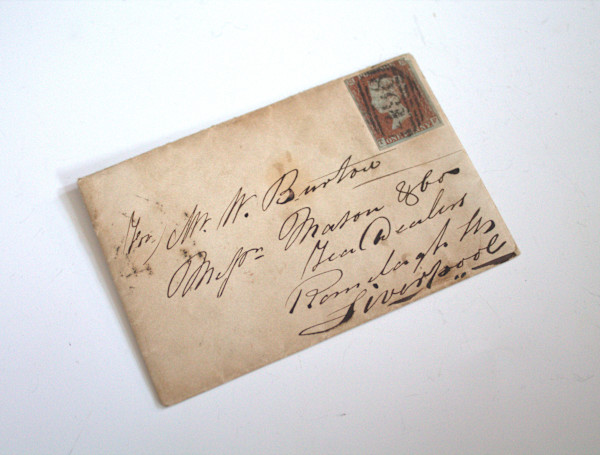 (For) Mr. W. Burton
Messrs Maton & Co
Tea Dealers
Ranelagh St
Liverpool
ONE PENNY